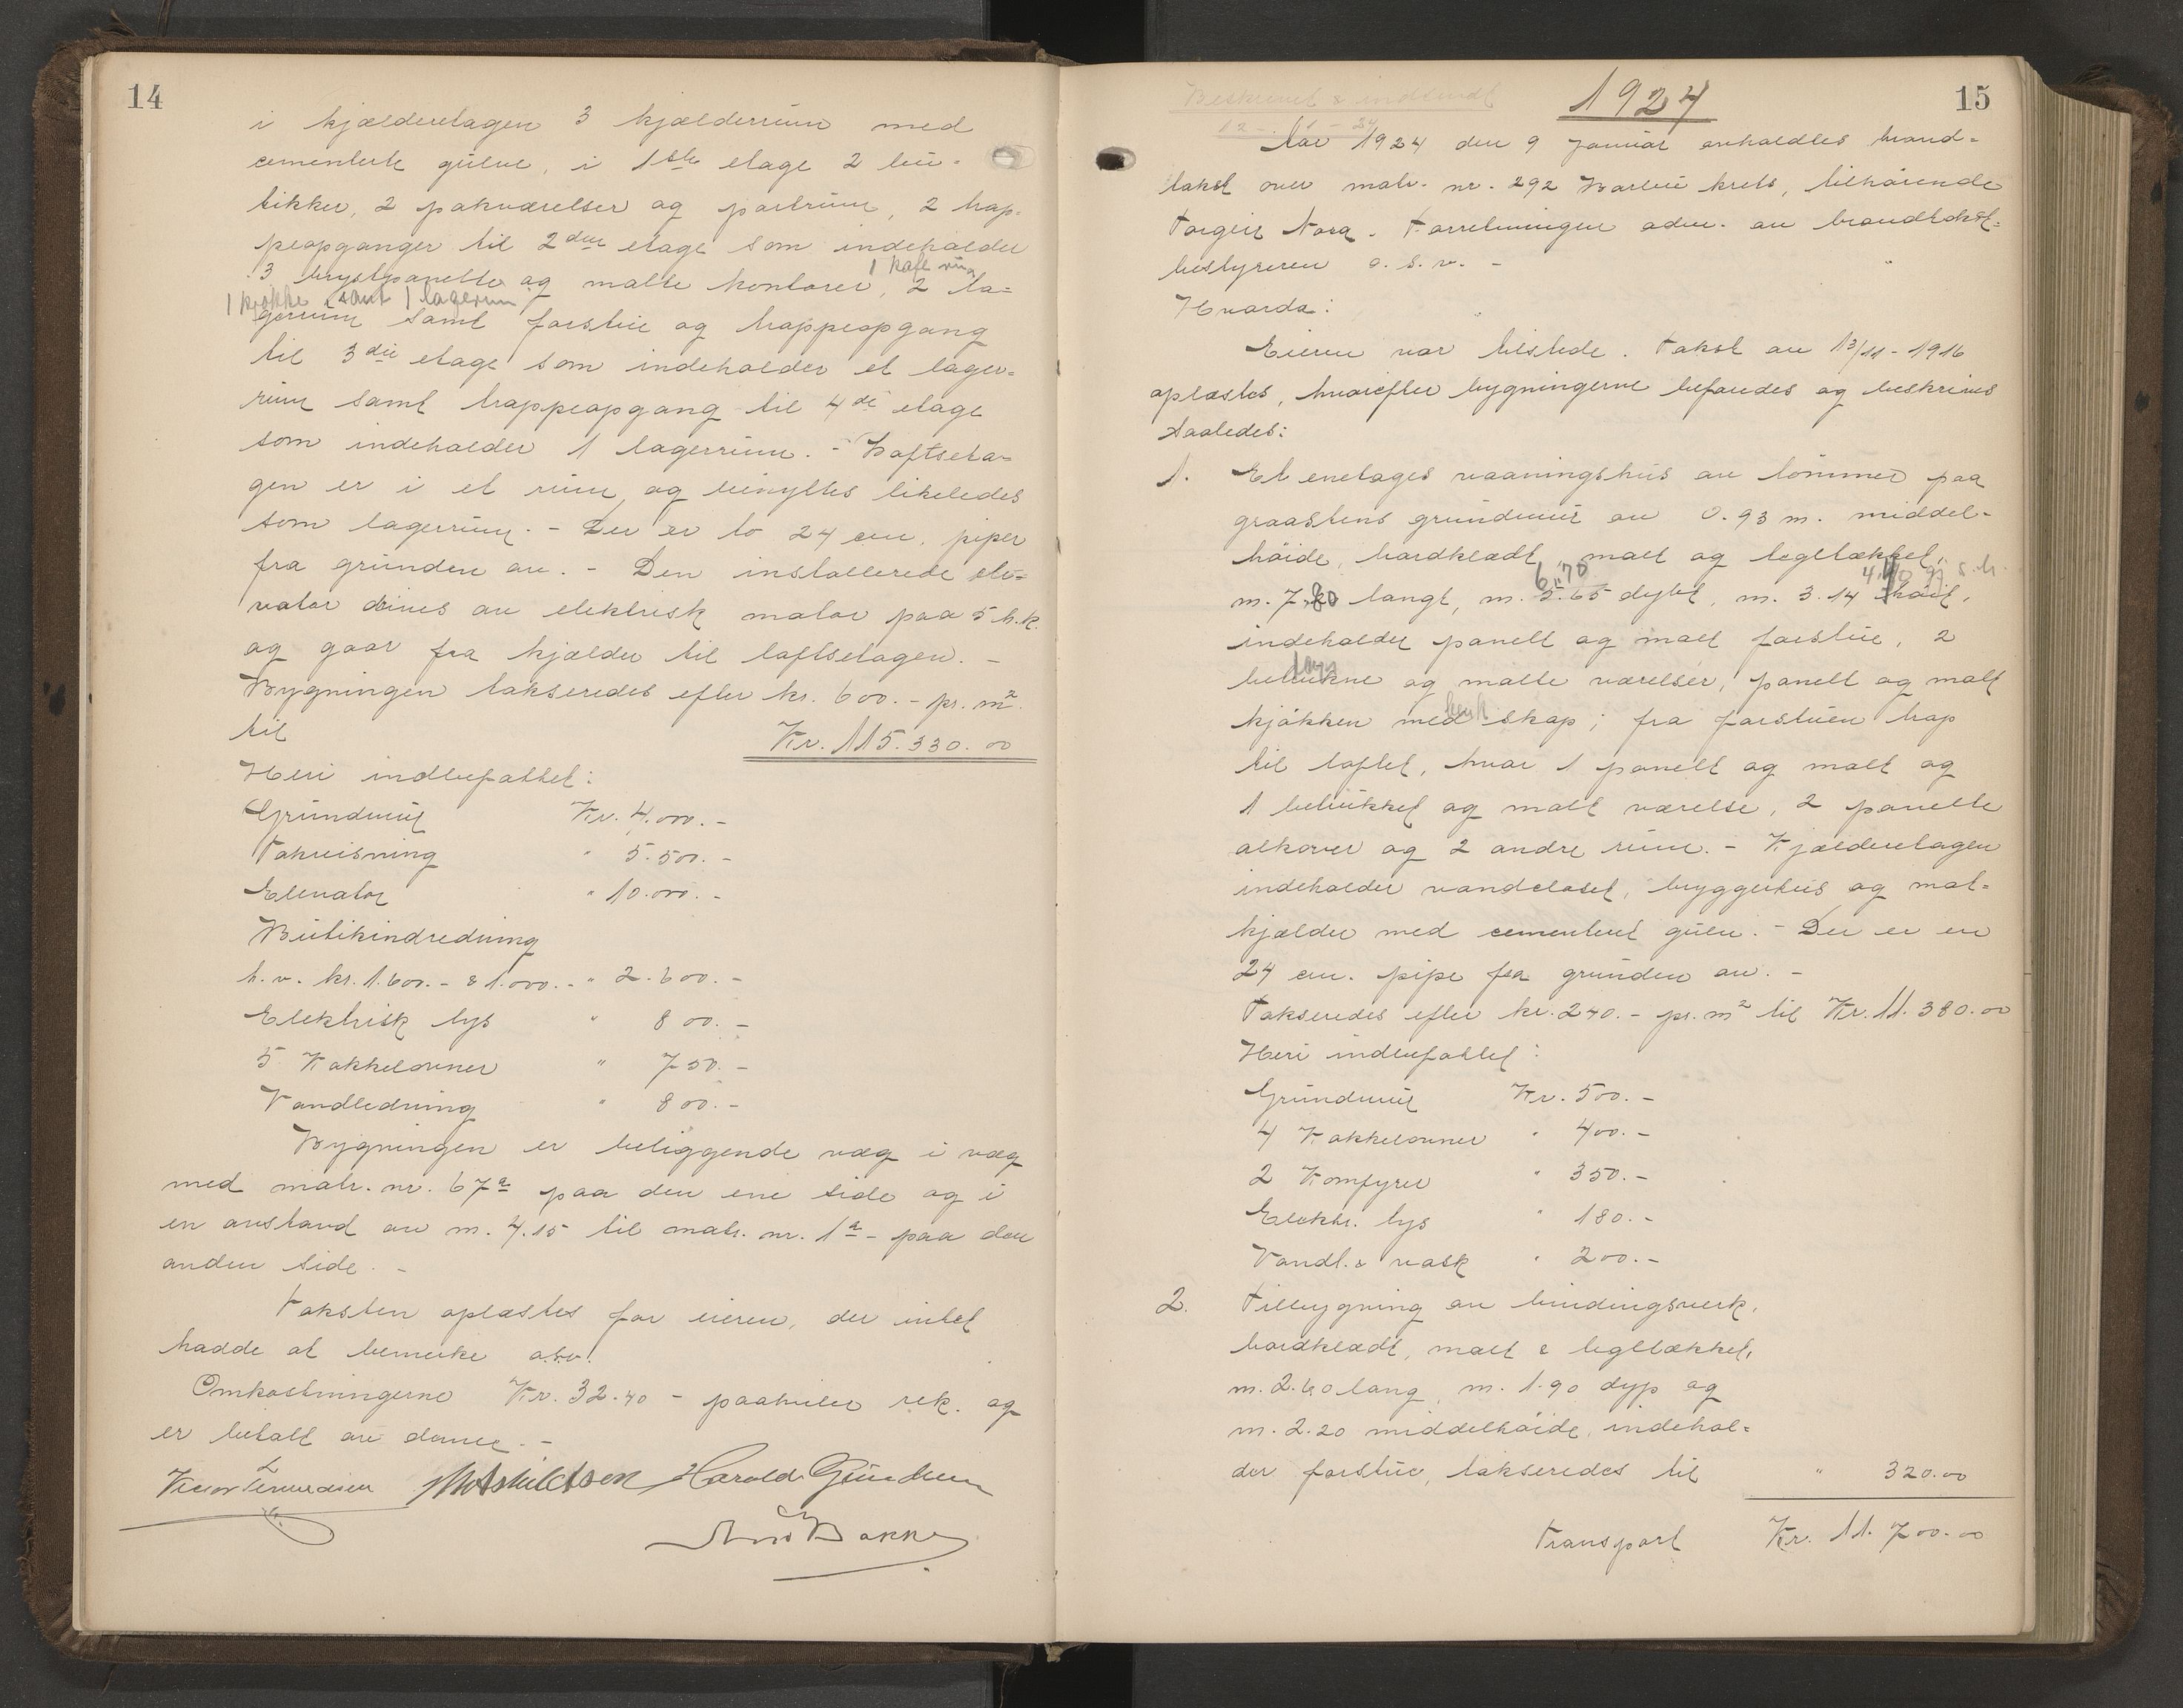 14
i kjælderetagen 3 kjælderrum med
cementerte gulve, i 1ste etage 2 bu-
tikker, 2 pakværelser og portrum, 2 trap-
peopganger til 2den etage som indeholder
1 kafe rum
3 brystpanelte og malte kontorer, 2 la-
1 kjøkken samt 1 lagerrum
gerrum samt forstue og trappeopgang
til 3die etage som indeholder et lager-
rum samt trappeopgang til 4de etage
som indeholder 1 lagerrum. - Loftseta-
gen er i et rum, og benyttes likeledes
som lagerrum. - Der er to 24 cm. piper
fra grunden av. - Den installerede ele-
vator drives av elektrisk motor paa 5 h.k.
og gaar fra kjælder til loftsetagen. -
Bygningen takseredes efter kr. 600.- pr. m².
til Kr. 115.330.00
Heri indbefattet:
Grundmur Kr. 4.000.-
Takreisning " 5.500.-
Elevator " 10.000.-
Butikindredning
h.v. kr. 1.600.- & 1.000.- " 2.600.-
Elektrisk lys " 800.-
5 Kakkelovner " 750.-
Vandledning " 800.-
Bygningen er beliggende væg i væg
med matr. nr. 67a paa den ene side og i
en avstand av m. 4.15 til matr. nr. 1a - paa den
anden side. -
Taksten oplæstes for eieren, der intet
hadde at bemerke o.s.v.
Omkostningerne Kr. 32.40 - paahviler rek. og
er betalt av denne. -
Harold Gundersen
Bakke
15
Beskrevet & indsendt
12 - 1 - 24
1924
Aar 1924 den 9 januar avholdtes brand-
takst over matr. nr. 292 Barbu krets, tilhørende
Torgeir Nora. Forretningen adm. av brandtakst-
bestyreren o.s.v. -
Hvorda:
Eieren var tilstede. Takst av 13/11 - 1916
oplæstes, hvorefter bygningerne befandes og beskrives
saaledes:
1. Et enetages vaaningshus av tømmer paa
graastens grundmur av 0.93 m. middel-
høide, bordklædt, malt og tegltækket,
6.70 4.40 gj. s. h.
m. 7.80 langt, m. 5.65 dypt, m. 3.14 høit,
indeholder panelt og malt forstue, 2
betrukne og malte værelser, panelt og malt
kjøkken med skap; fra forstuen trap
til loftet, hvor 1 panelt og malt og
1 betrukket og malt værelse, 2 panelte
alkover og 2 andre rum. - Kjælderetagen
indeholder vandcloset, bryggerhus og mat-
kjælder med cementeret gulv. - Der er en
24 cm. pipe fra grunden av. -
Takseredes efter kr. 240.- pr. m² til Kr. 11.380.00
Heri indbefattet:
Grundmur Kr. 500.-
4 Kakkelovner " 400.-
2 Komfyrer " 350.-
Elektr. lys " 180.-
Vandl. & vask " 200.-
2. Tilbygning av bindingsverk,
bordklædt, malt & tegltækket,
m. 2.60 lang, m. 1.90 dyp og
m. 2.20 middelhøide, indehol-
der forstue, takseredes til " 320.00
Transport Kr. 11.700.00